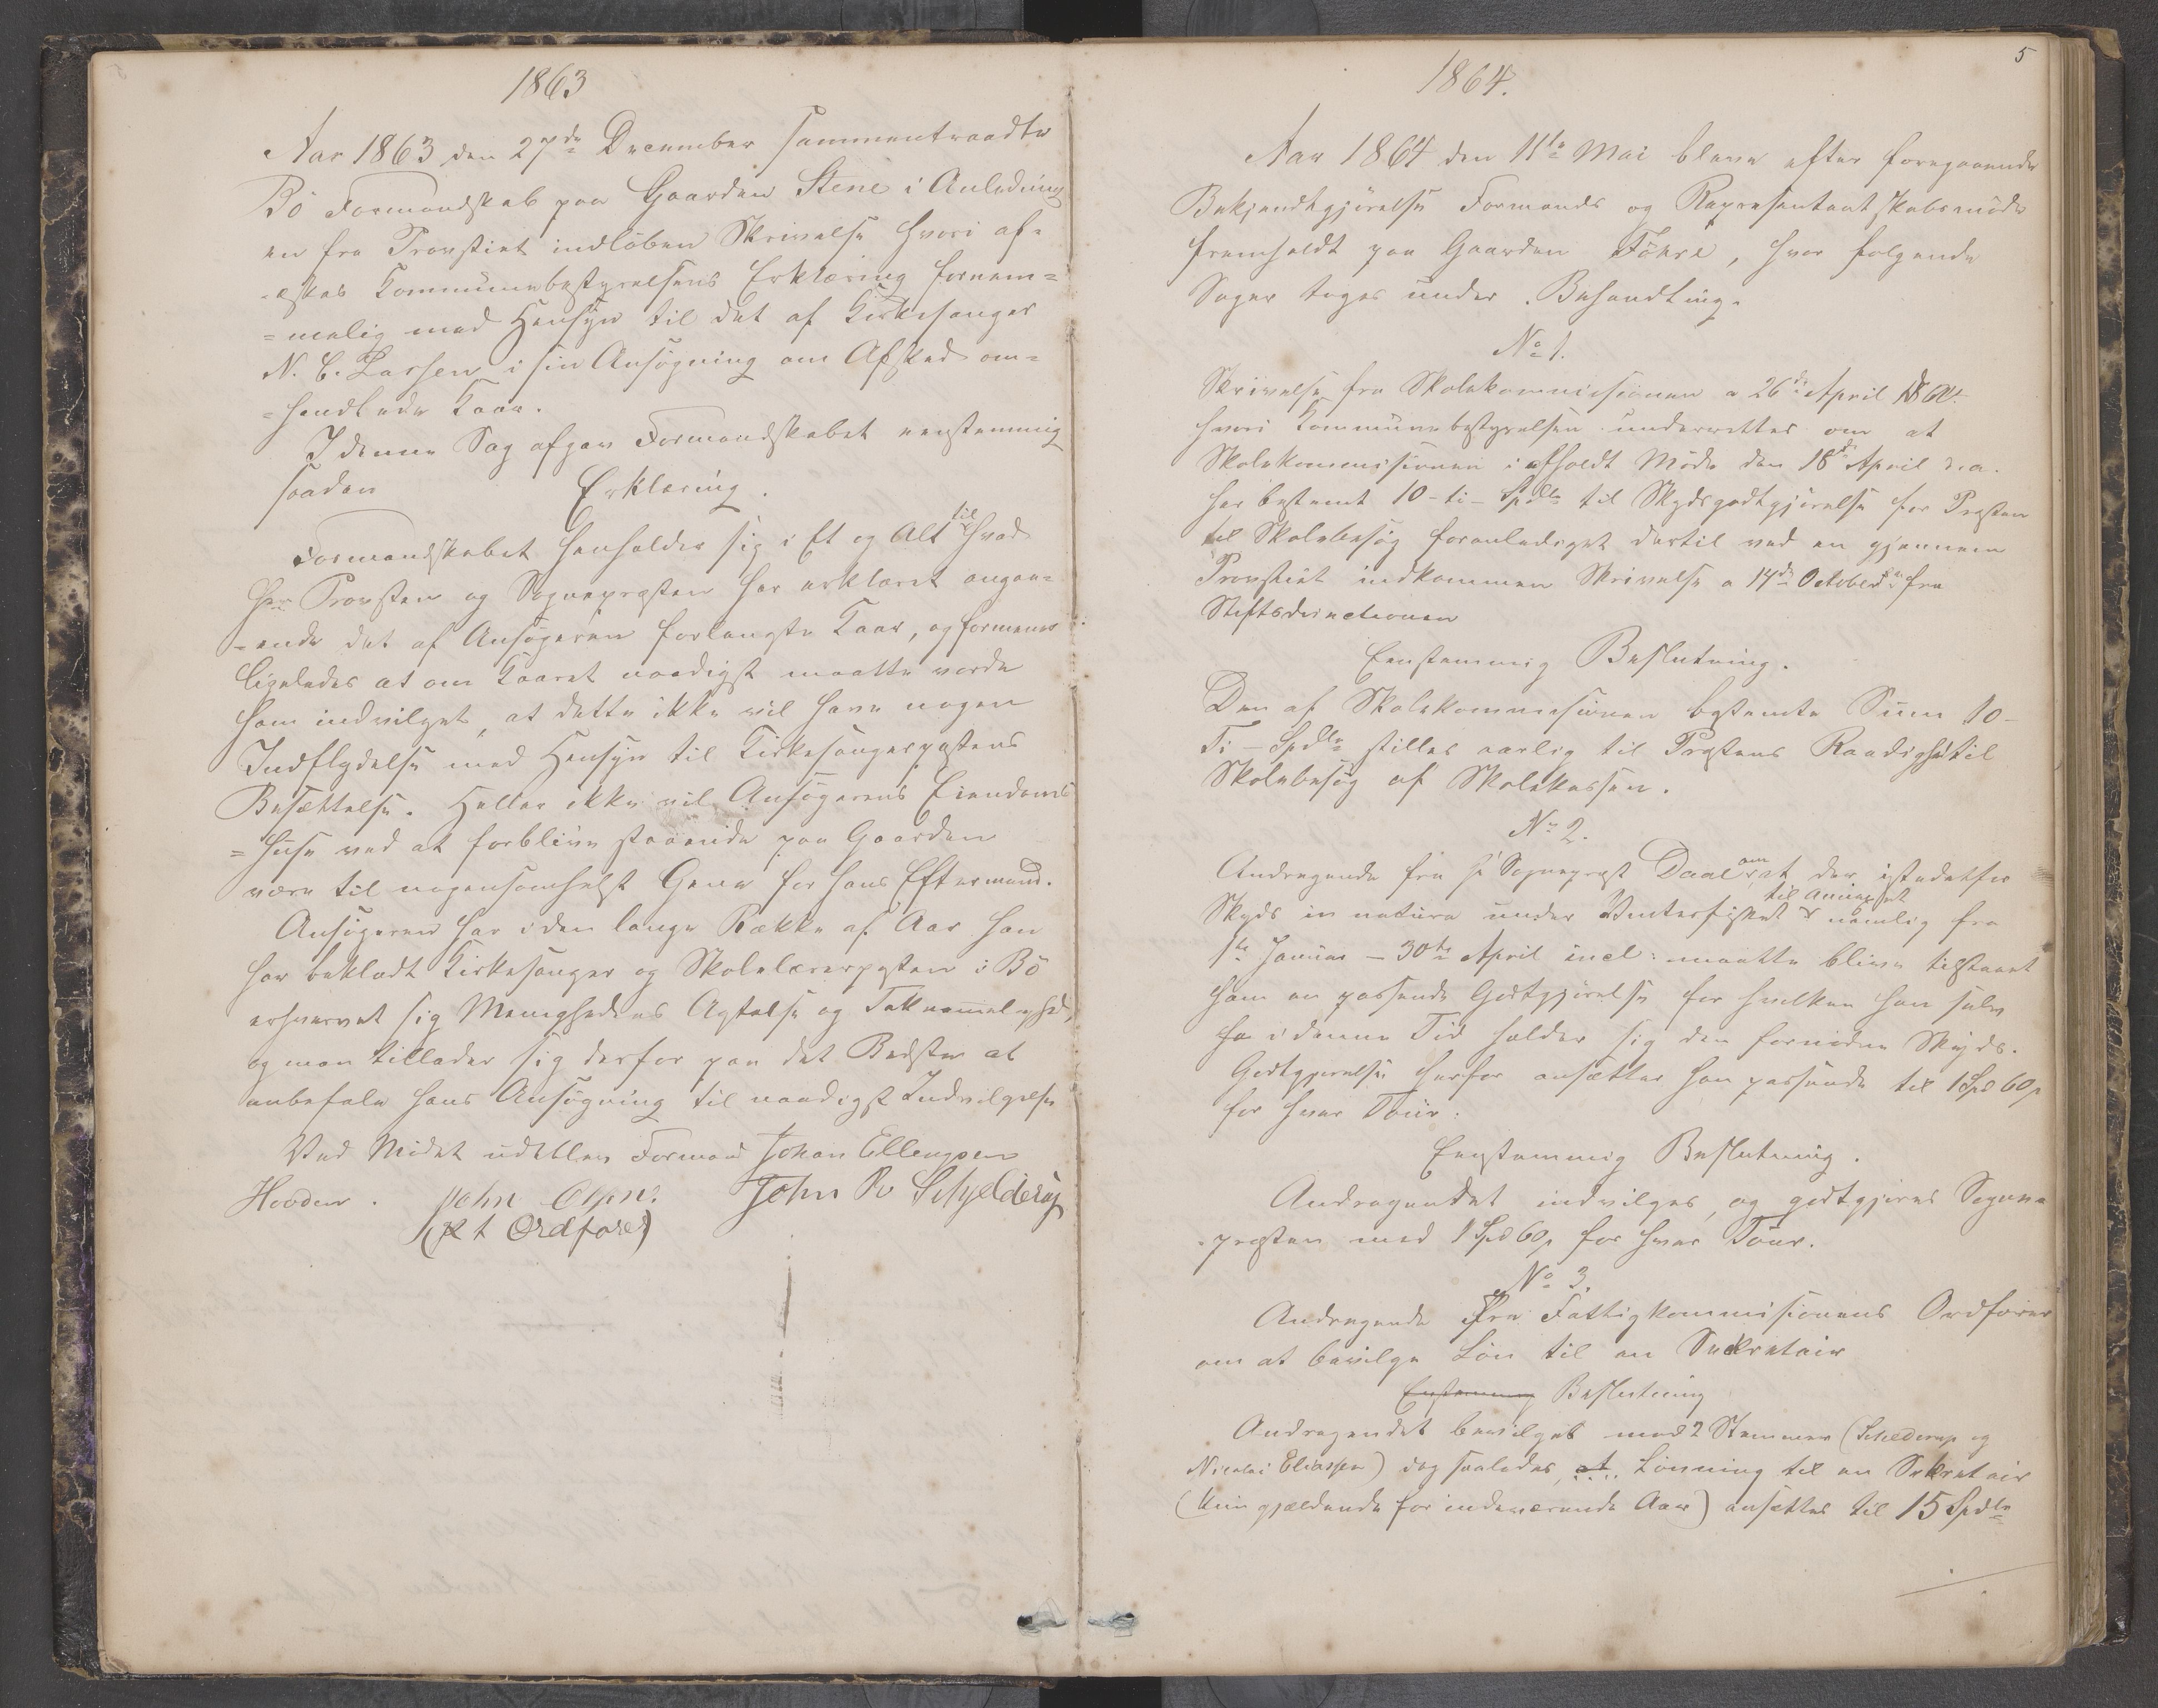 1863
Aar 1863 den 27de December sammentraadte
Bö Formandskab paa Gaarden Stene i Anledning
en fra Provstiet indlöben Skrivelse hvori af-
-æskes Kommunebestyrelsens Erklæring fornem=
=melig med Hensyn til det af Kirkesanger
N. C. Lassen i sin Ansögning om Afsked om=
=handlede Kaar.
I denne Sag afgav Formandskabet eenstemmig
saadan Erklæring.
Formandskabet henholder sig i Et og Alt til hvad
Hr Provsten og Sognepræsten har erklæret angaa=
-ende det af Ansögeren forlangte Kaar, og formener
ligeledes at om Kaaret naadigst maatte vorde
ham indvilget, at dette ikke vil have nogen
Indflydelse med Hensyn til Kirkesangerpostens
Besættelse. Heller ikke vil Ansögerens Eiendoms
=huse ved at forblive staaende paa Gaarden
være til nogensomhelst Gene for hans Eftermand.
Ansögeren har i den lange Række af Aar han
har beklædt Kirkesanger og Skolelærerposten i Bö
erhvervet sig Menighedens Agtelse og Taknemelighed,
og man tillader sig derfor paa det Bedste at
anbefale hans Ansögning til naadigst Indvilgelse
Ved Mödet udeblev Formand Johan Ellingsen
Hovden. John Olsen. John Ro Schjelderup
(p t Ordförer)
5
1864.
Aar 1864 den 11te Mai bleve efter foregaaende
Bekjendtgjörelse Formands og Repræsentantskabsmöde
fremholdt paa Gaarden Föhre, hvor fölgende
Sager toges under Behandling.
No 1.
Skrivelse fra Skolekommissionen a 26de April 1864
hvori Kommunebestyrelsen underrettes om at
Skolekommisionen i afholdt Möde den 18de April d. a.
har bestemt 10-ti-Spdlr til Skydsgodtgjörelse for Præsten
til Skolebesög foranlediget dertil ved en gjennem
Provstiet indkommen Skrivelse a 14de October fra
Stiftsdirectionen
Eenstemmig Beslutning.
Den af Skolekommisionen bestemte Sum 10-
Ti-Spdlr stilles aarlig til Præstens Raadighed til
Skolebesög af Skolekassen.
No 2.
Andragende fra Hr Sognepræst Daae om, at der istedetfor
Skyds in natura under Vinterfisket til Annexet nemlig fra
1te Januar - 30te April incl: maatte blive tilstaaet
ham en passende Godtgjörelse for hvilken han selv
i denne Tid holder sig den fornödne Skyds.
Godtgjörelse herfor ansætter han passende til 1 Spd 60 p
for hver Tour.
Eenstemmig Beslutning.
Andragendet indvilges, og godtgjöres Sogne
-præsten med 1 Spd 60 p for hver Tour.
No 3.
Andragende fra Fattigkommisionens Ordförer
om at bevilge Lön til en Sekretair
Eenstemmig Beslutning
Andragendet bevilges med 2 Stemmer (Schelderup og
Nicolai Eliassen) dog saaledes, at Lönning til en Sekretair
(kun gjældende for indeværende Aar) ansættes til 15 Spdlr